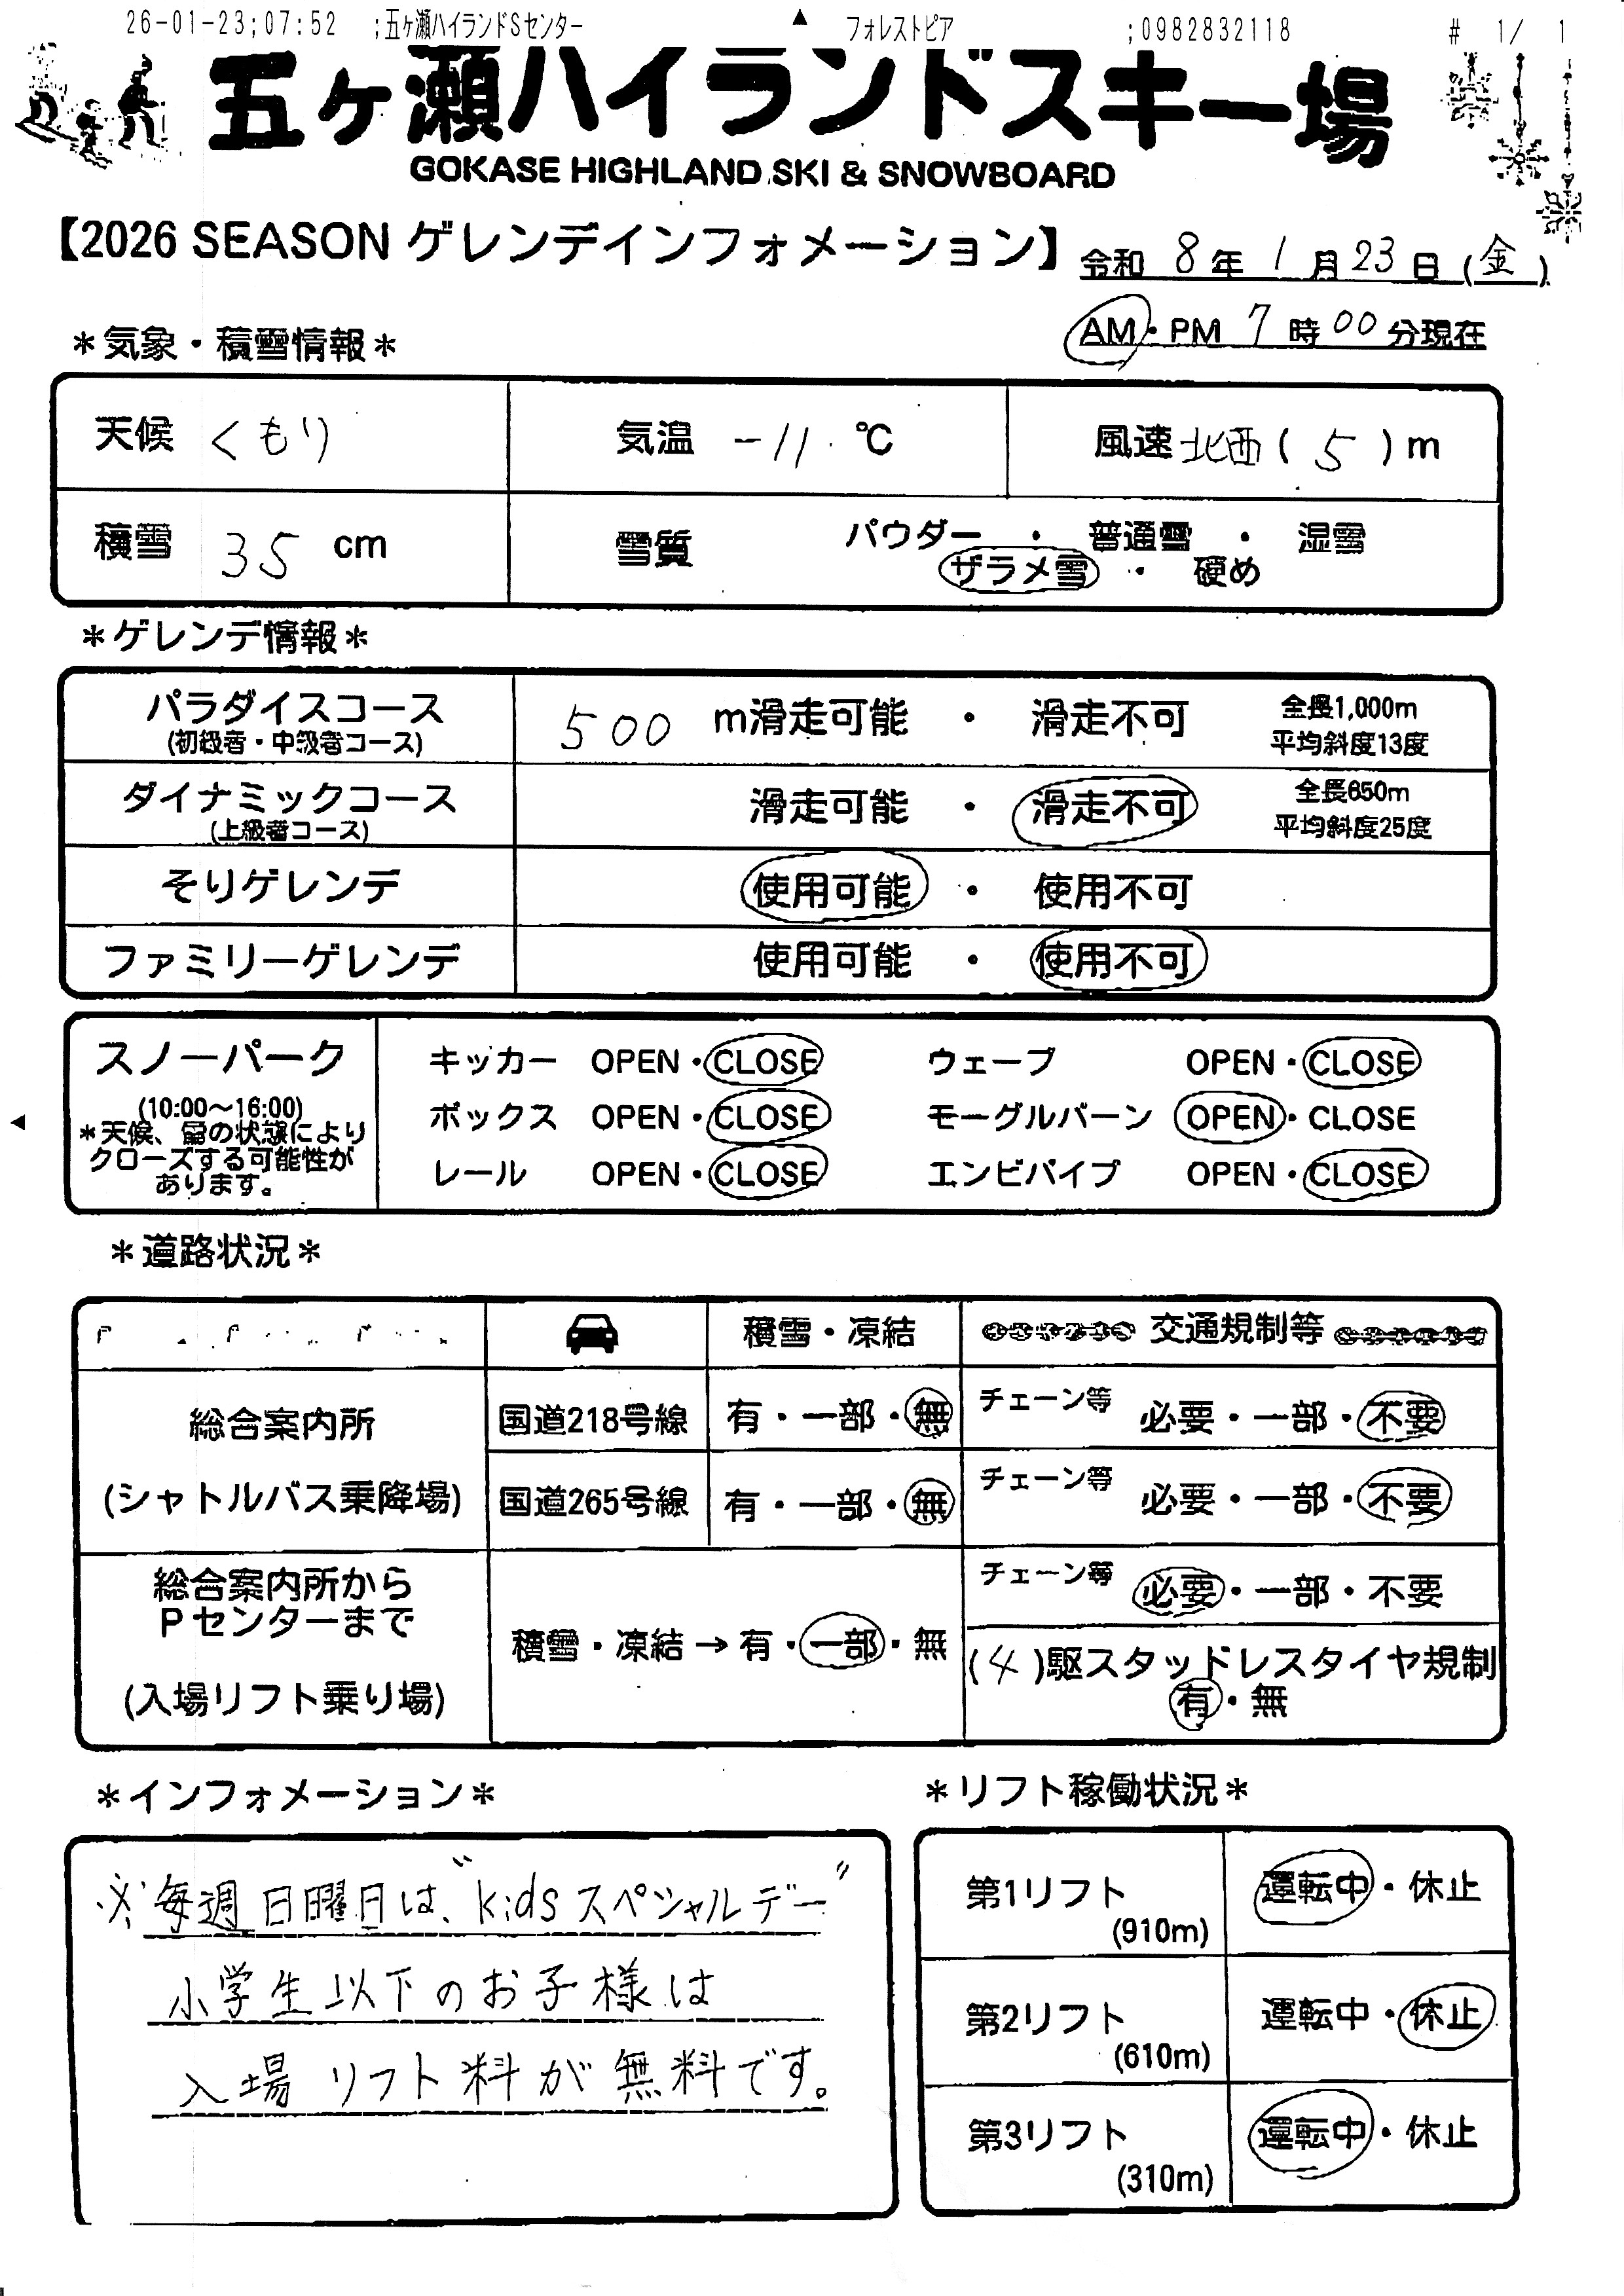 26-01-23;07:52 ;五ヶ瀬ハイランドSセンター ▲ フォレストピア ;0982832118 # 1/ 1
五ヶ瀬ハイランドスキー場
GOKASE HIGHLAND SKI & SNOWBOARD
【2026 SEASON ゲレンデインフォメーション】 令和 8 年 1 月 23 日 (金)
AM・PM 7 時 00 分現在
*気象・積雪情報*
天候 くもり 気温 -11 ℃ 風速 北西 ( 5 ) m
積雪 35 cm 雪質 パウダー ・ 普通雪 ・ 湿雪
ザラメ雪 ・ 硬め
*ゲレンデ情報*
パラダイスコース 500 m滑走可能 ・ 滑走不可 全長1,000m
(初級者・中級者コース) 平均斜度13度
ダイナミックコース 滑走可能 ・ 滑走不可 全長650m
(上級者コース) 平均斜度25度
そりゲレンデ 使用可能 ・ 使用不可
ファミリーゲレンデ 使用可能 ・ 使用不可
スノーパーク キッカー OPEN・CLOSE ウェーブ OPEN・CLOSE
(10:00～16:00) ボックス OPEN・CLOSE モーグルバーン OPEN・CLOSE
*天候、雪の状態により
クローズする可能性が レール OPEN・CLOSE エンビパイプ OPEN・CLOSE
あります。
*道路状況*
積雪・凍結 交通規制等
総合案内所 国道218号線 有・一部・無 チェーン等 必要・一部・不要
(シャトルバス乗降場) 国道265号線 有・一部・無 チェーン等 必要・一部・不要
総合案内所から チェーン等 必要・一部・不要
Pセンターまで 積雪・凍結→有・一部・無 (4)駆スタッドレスタイヤ規制
(入場リフト乗り場) 有・無
*インフォメーション*
※毎週日曜日は、"kidsスペシャルデー"
小学生以下のお子様は
入場リフト料が無料です。
*リフト稼働状況*
第1リフト 運転中・休止
(910m)
第2リフト 運転中・休止
(610m)
第3リフト 運転中・休止
(310m)